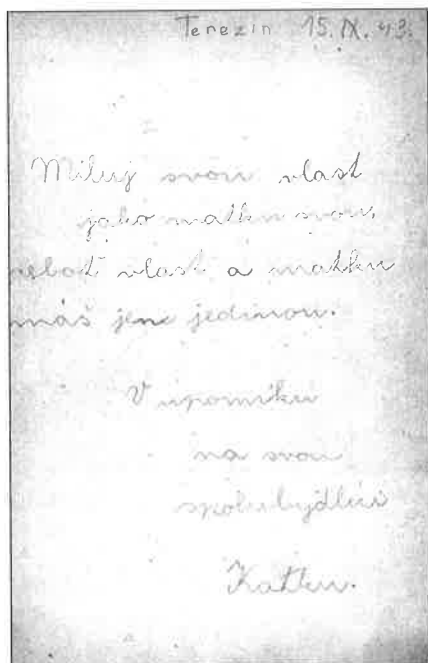 Terezín 15. IX. 43.
Miluj svou vlast
jako matku svou,
neboť vlast a matku
máš jen jedinou.
V upomínku
na svou
spolubydlící
Katku.